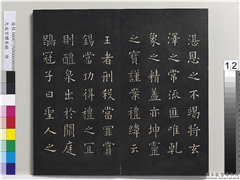 湛恩之不竭將玄
澤之常流匪唯乾
象之精蓋亦坤靈
之寶謹案禮緯云
王者刑殺當罪賞
錫當功得禮之宜
則醴泉出於闕庭
鶡冠子曰聖人之
12